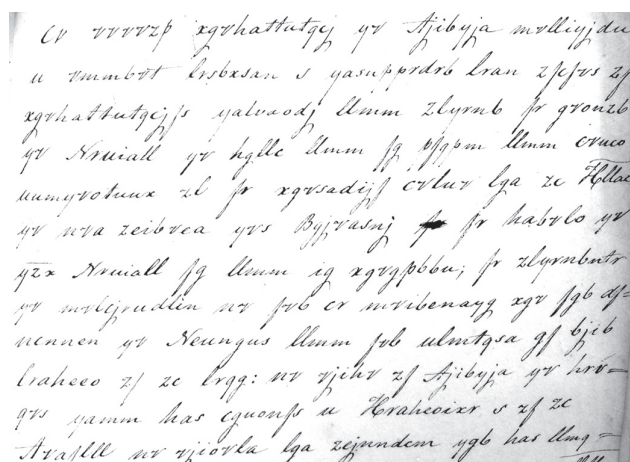 Cr vvvvzp xgvhattutgcj yv Ajibyja mvlliyjdu
u vmmbvt lvsbxsan s yasuppvdvb lvan zfcfvs zf
xgvhattutgcjfs yalvaodj llmm zlyvnb fv gvonzb
yv Nvuiall yv hglle llmm fg pfgpm llmm cvuco
uumyvotuux zl fv xgvsadijf cvluv lga ze Hllae
yv nva zeibvea yvs Byjvasnj fv habvlo yv
yzx Nvuiall fg llmm ig xgvgpbbu; fv zlyvnbntv
yv mvbcjvudlin nv fvb cv mvibenayg xgv fgb df=
ucnnen yv Neungus llmm fvb ulmtqsa gf bjib
lvaheeo zf ze lvgg: nv vjihv zf Ajibyja yv hvv=
qvs yamm has cguonfs u Hvaheoixv s zf ze
Avaflll nv vjiovla lga zejnndem ygb has llmq=